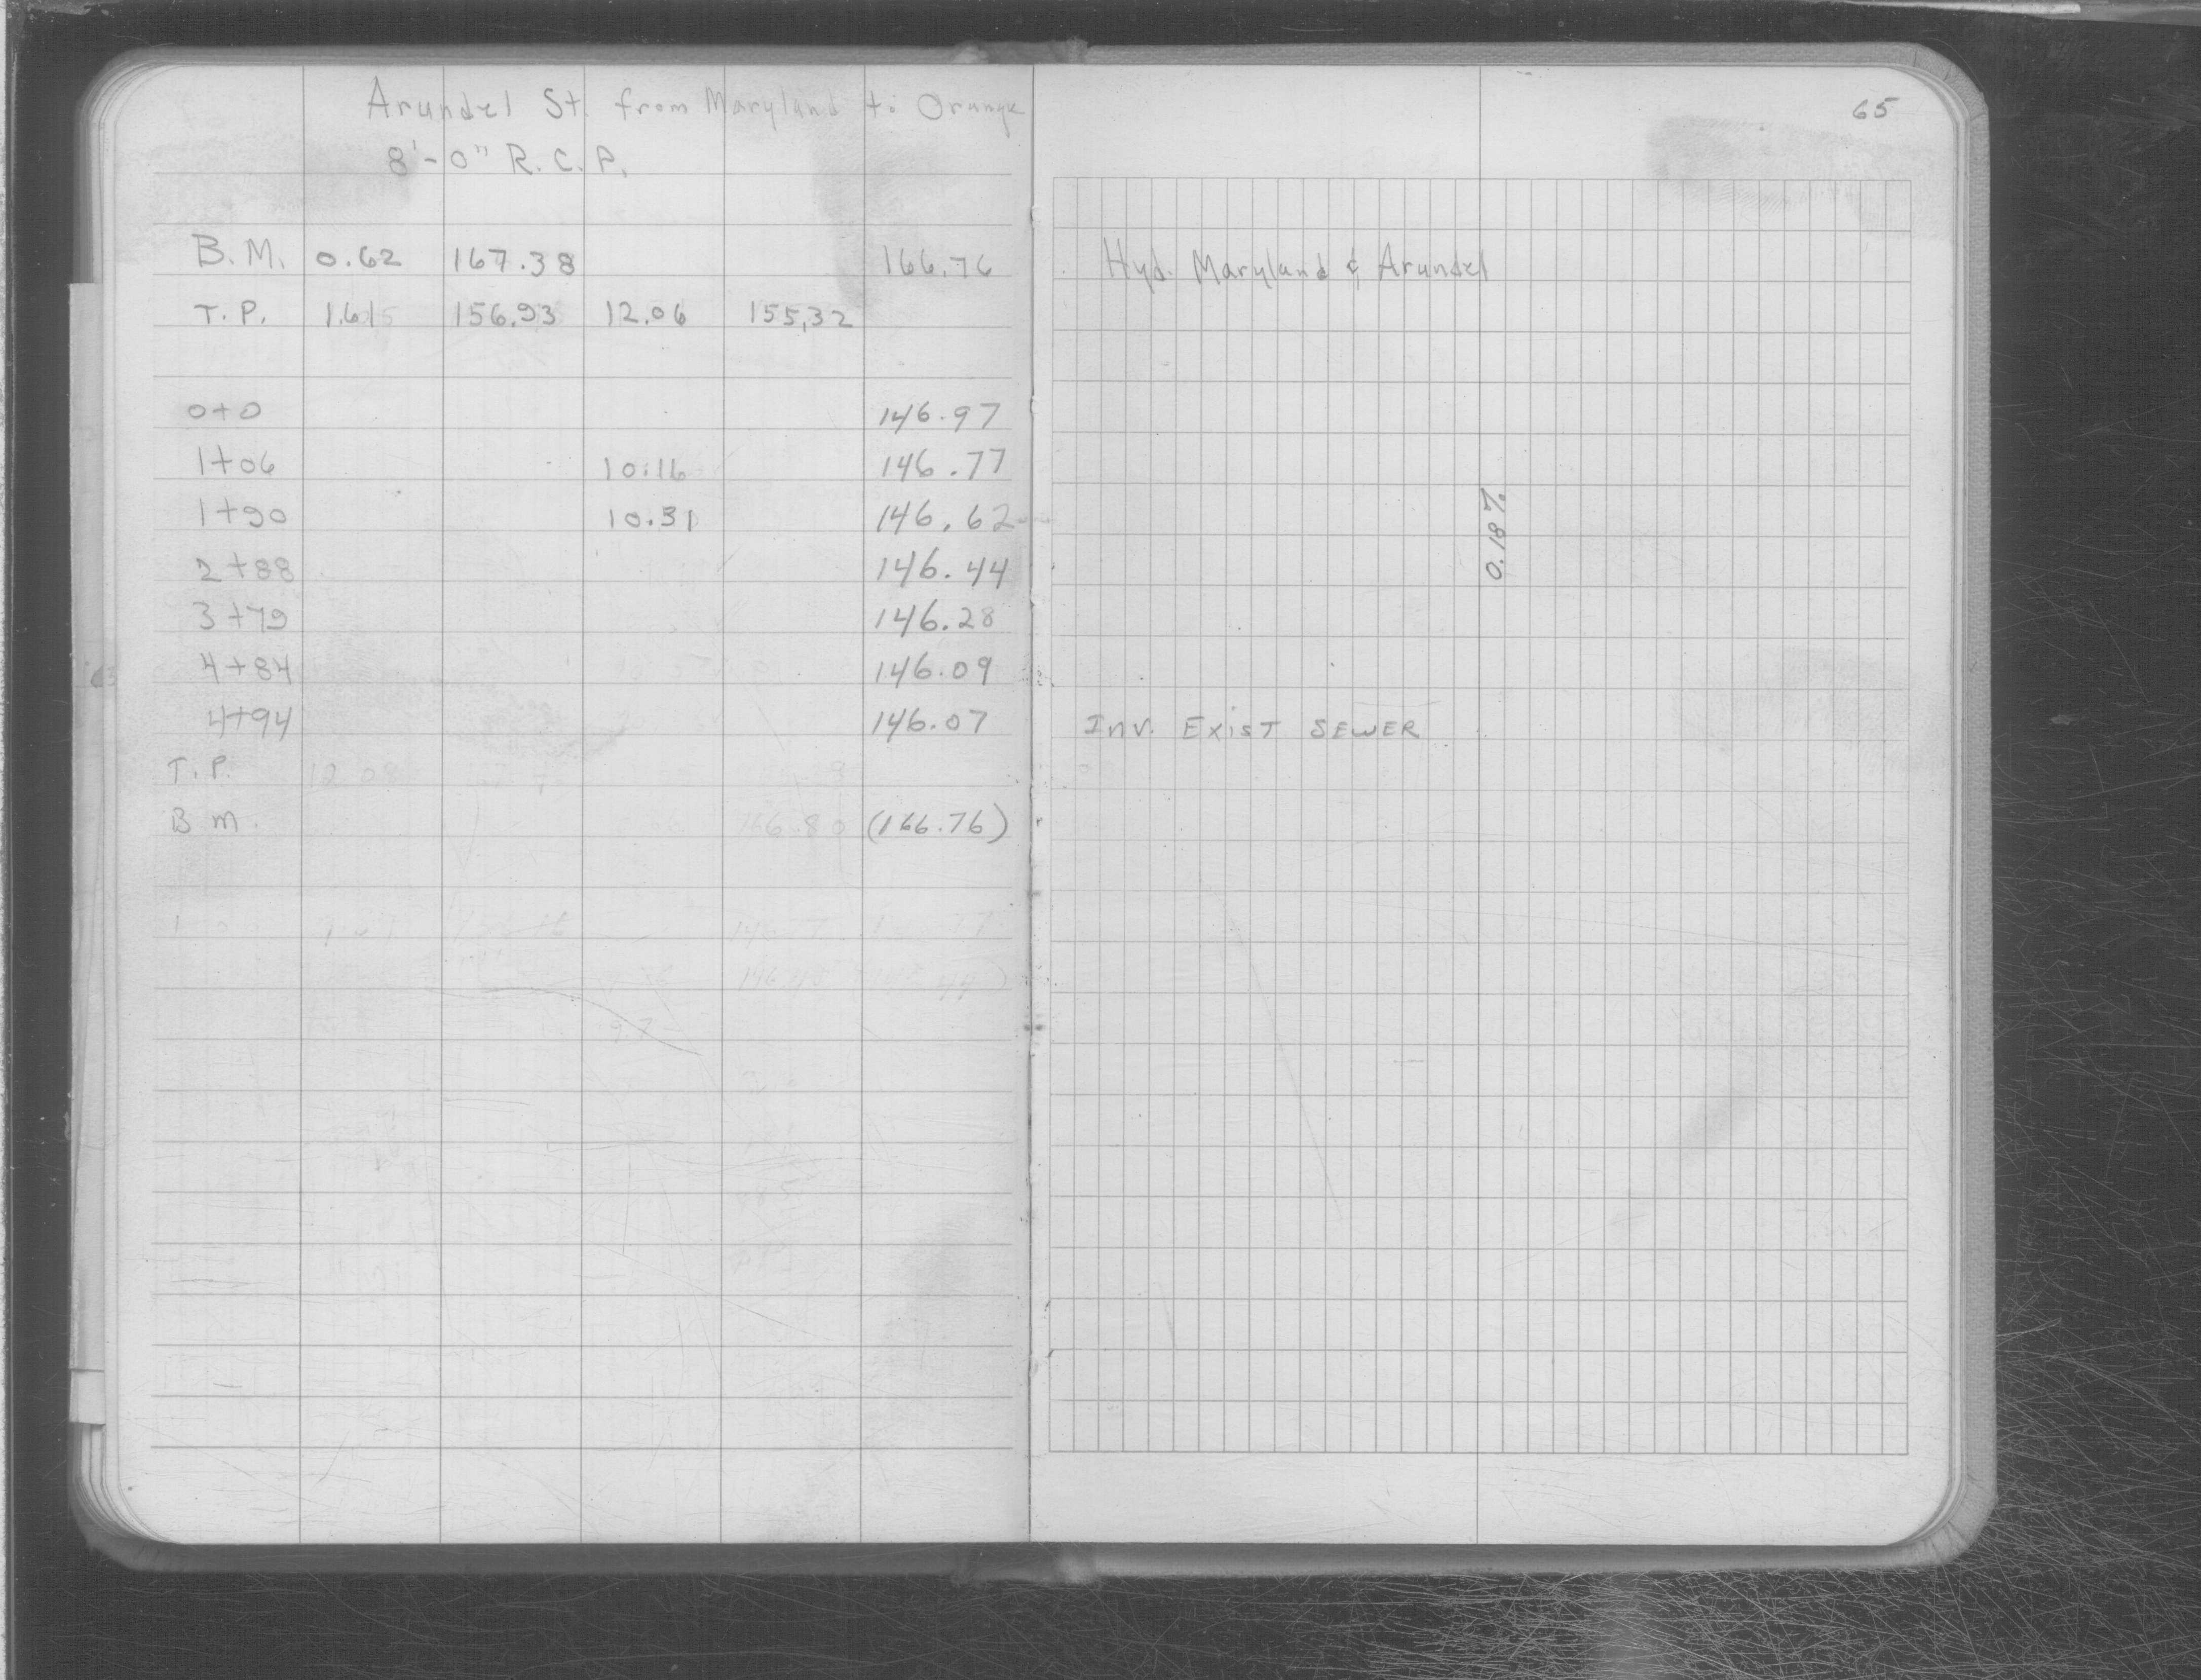 Arundel St. from Maryland to Orange
8'-0" R.C.P.
65
B.M. 0.62 167.38 166.76 Hyd. Maryland & Arundel
T.P. 1.61 156.93 12.06 155.32
0+0 146.97
1+06 10.16 146.77
1+90 10.31 146.62
0.18%
2+88 146.44
3+79 146.28
4+84 146.09
4+94 146.07 Inv. Exist Sewer
T.P. 12.08
B.M. 166.80 (166.76)